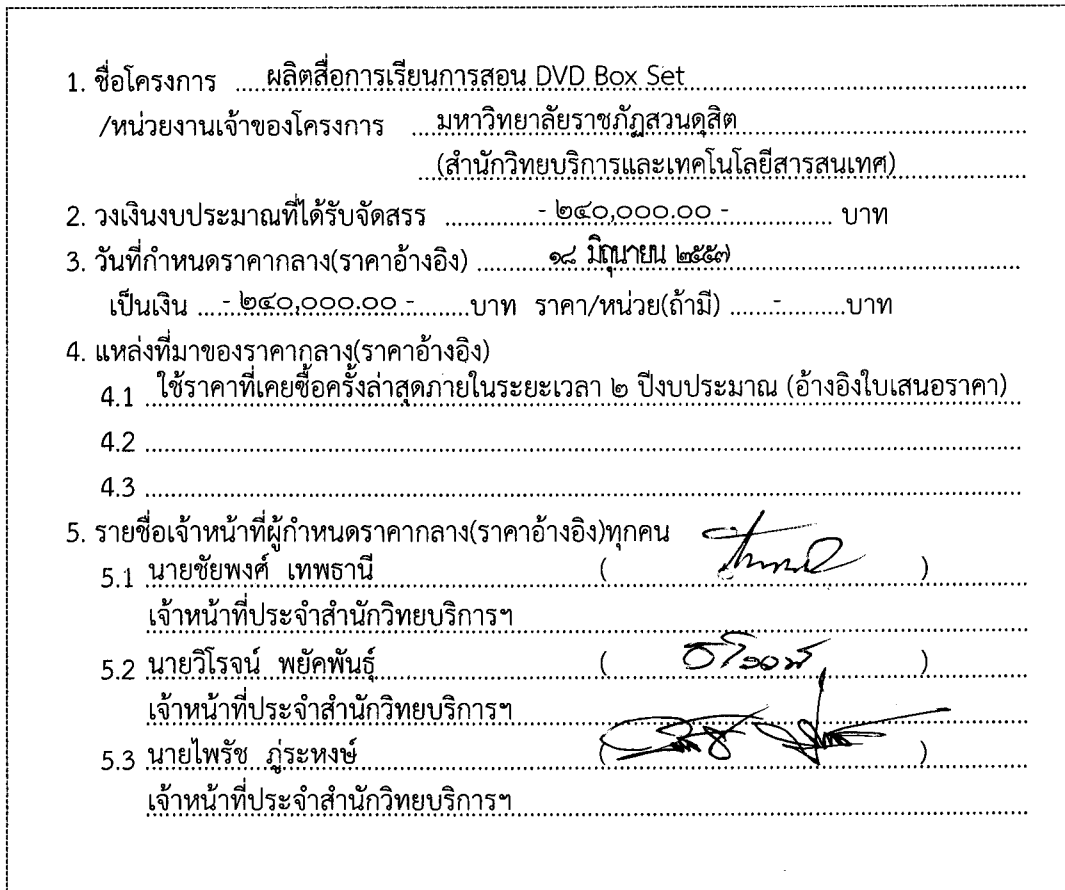 1. ชื่อโครงการ .....ผลิตสื่อการเรียนการสอน DVD Box Set
/หน่วยงานเจ้าของโครงการ ....มหาวิทยาลัยราชภัฏสวนดุสิต
(สำนักวิทยบริการและเทคโนโลยีสารสนเทศ)
2. วงเงินงบประมาณที่ได้รับจัดสรร ...............- ๒๔๐,๐๐๐.๐๐ -................. บาท
3. วันที่กำหนดราคากลาง(ราคาอ้างอิง) ............๑๘ มิถุนายน ๒๕๕๗
เป็นเงิน .....- ๒๔๐,๐๐๐.๐๐ -..........บาท ราคา/หน่วย(ถ้ามี) ........-............บาท
4. แหล่งที่มาของราคากลาง(ราคาอ้างอิง)
4.1 ใช้ราคาที่เคยซื้อครั้งล่าสุดภายในระยะเวลา ๒ ปีงบประมาณ (อ้างอิงใบเสนอราคา)
4.2
4.3
5. รายชื่อเจ้าหน้าที่ผู้กำหนดราคากลาง(ราคาอ้างอิง)ทุกคน
5.1 นายชัยพงศ์ เทพธานี ( )
เจ้าหน้าที่ประจำสำนักวิทยบริการฯ
5.2 นายวิโรจน์ พยัคพันธุ์ ( )
เจ้าหน้าที่ประจำสำนักวิทยบริการฯ
5.3 นายไพรัช ภู่ระหงษ์ ( )
เจ้าหน้าที่ประจำสำนักวิทยบริการฯ